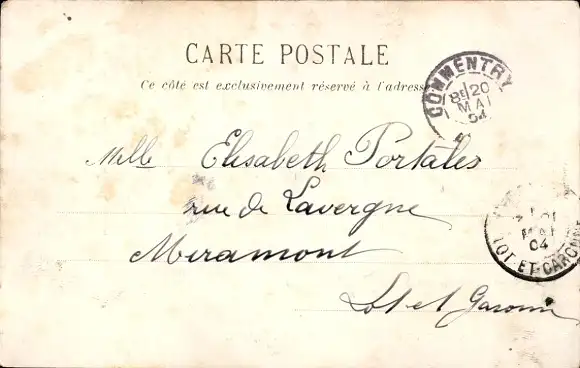 CARTE POSTALE
Ce côté est exclusivement réservé à l'adresse
COMMENTRY
8E 20
MAI
04
Melle Elisabeth Portales
rue de Lavergne
Miramont
Lot et Garonne
MAI
04
LOT-ET-GARONNE